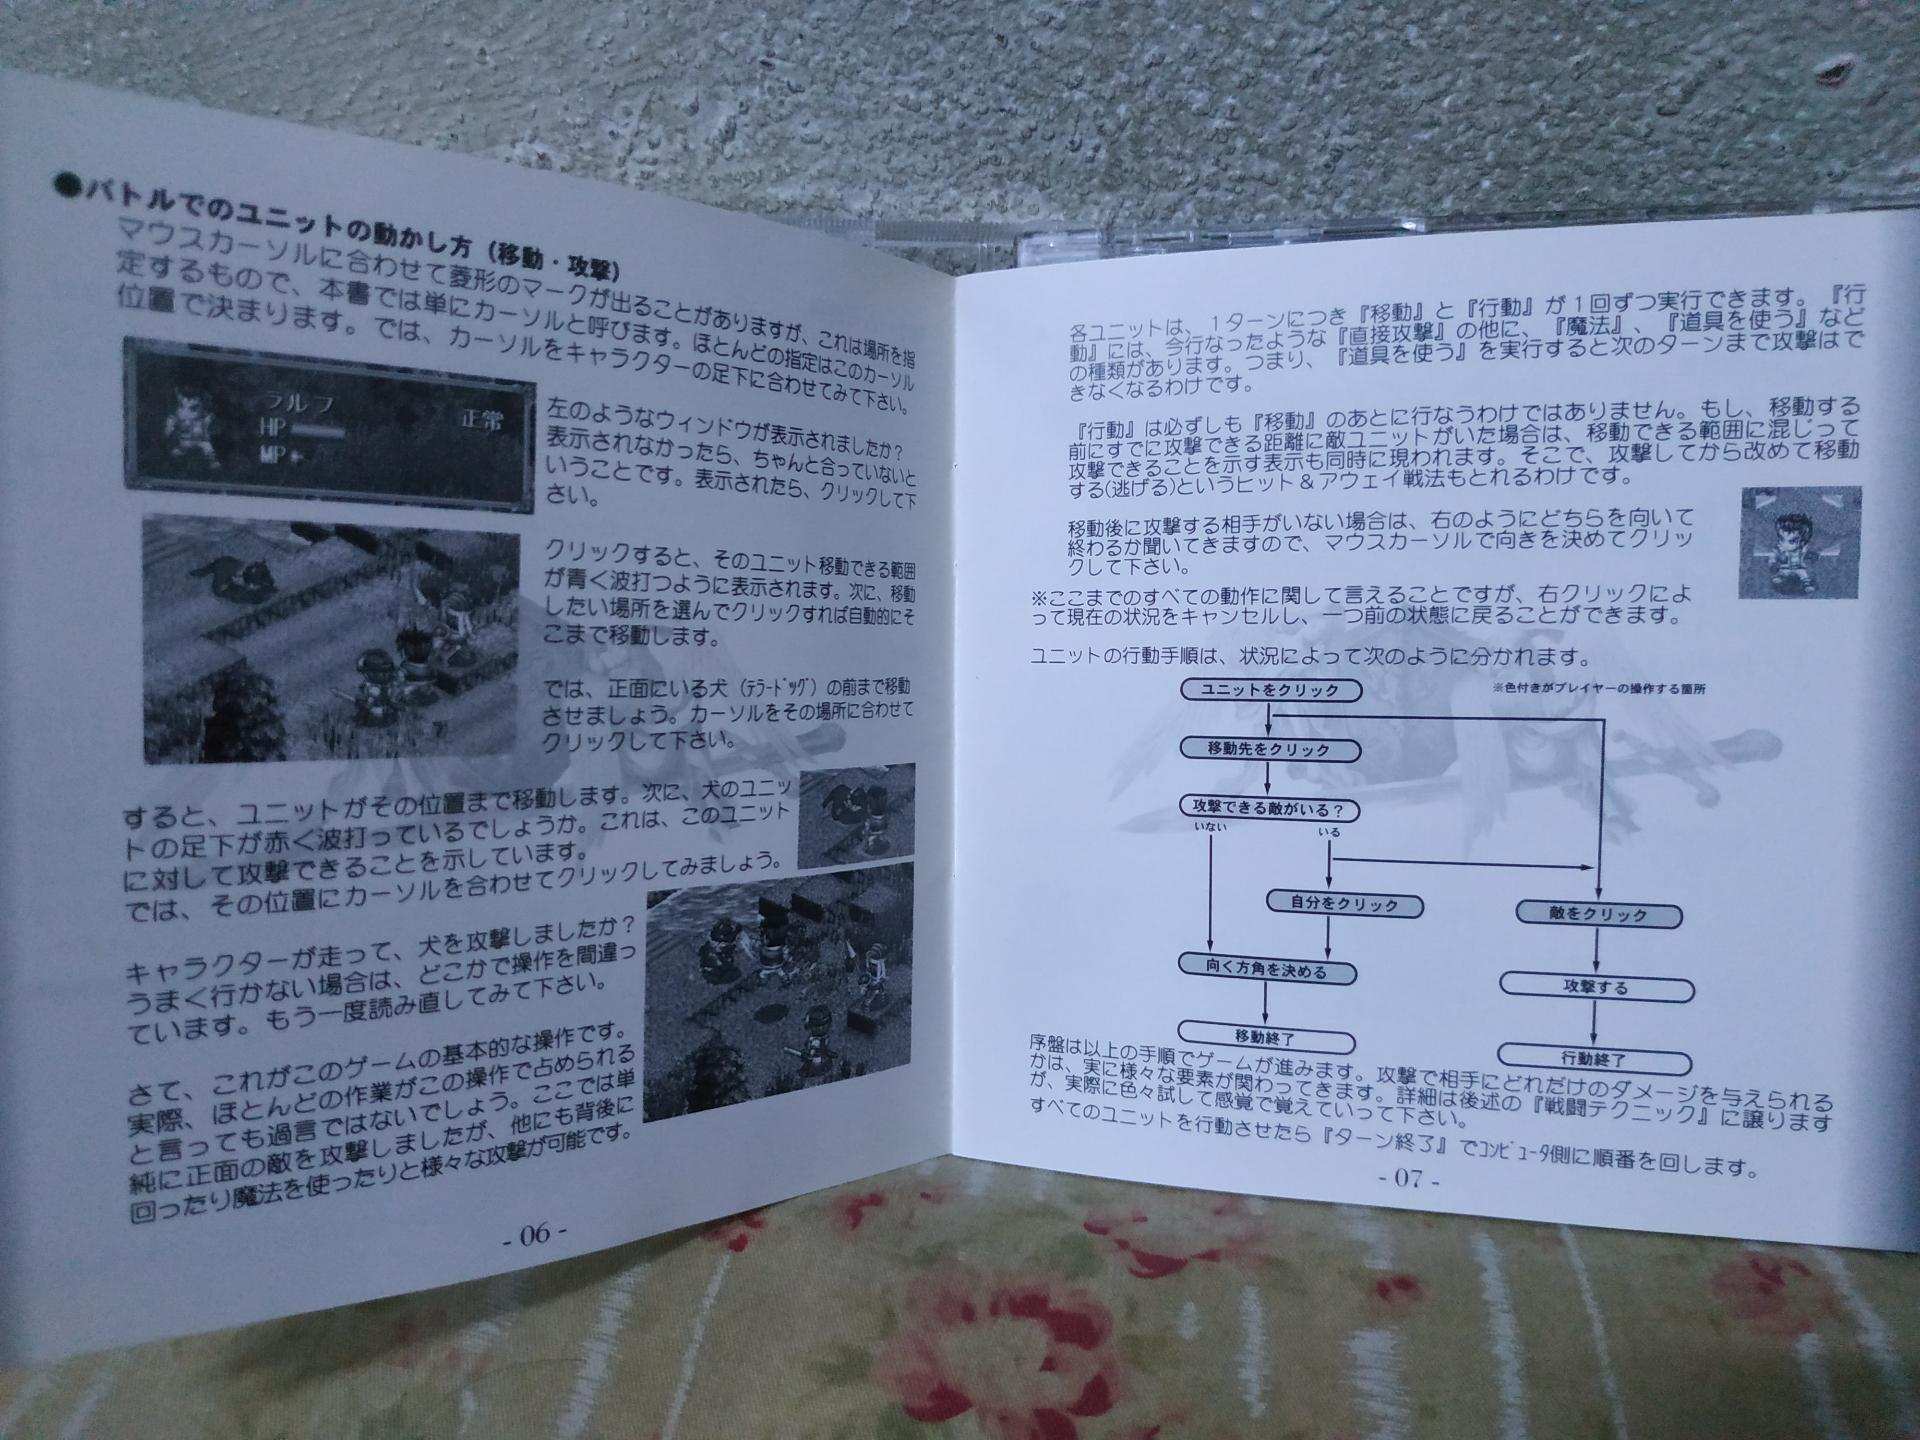 ●バトルでのユニットの動かし方（移動・攻撃）
マウスカーソルに合わせて菱形のマークが出ることがありますが、これは場所を指
定するもので、本書では単にカーソルと呼びます。ほとんどの指定はこのカーソル
位置で決まります。では、カーソルをキャラクターの足下に合わせてみて下さい。
ラルフ
正常
HP
MP
左のようなウィンドウが表示されましたか？
表示されなかったら、ちゃんと合っていないと
いうことです。表示されたら、クリックして下
さい。
クリックすると、そのユニット移動できる範囲
が青く波打つように表示されます。次に、移動
したい場所を選んでクリックすれば自動的にそ
こまで移動します。
では、正面にいる犬（ﾃﾗｰﾄﾞｯｸﾞ）の前まで移動
させましょう。カーソルをその場所に合わせて
クリックして下さい。
すると、ユニットがその位置まで移動します。次に、犬のユニッ
トの足下が赤く波打っているでしょうか。これは、このユニット
に対して攻撃できることを示しています。
では、その位置にカーソルを合わせてクリックしてみましょう。
キャラクターが走って、犬を攻撃しましたか？
うまく行かない場合は、どこかで操作を間違っ
ています。もう一度読み直してみて下さい。
さて、これがこのゲームの基本的な操作です。
実際、ほとんどの作業がこの操作で占められる
と言っても過言ではないでしょう。ここでは単
純に正面の敵を攻撃しましたが、他にも背後に
回ったり魔法を使ったりと様々な攻撃が可能です。
- 06 -
各ユニットは、１ターンにつき『移動』と『行動』が１回ずつ実行できます。『行
動』には、今行なったような『直接攻撃』の他に、『魔法』、『道具を使う』など
の種類があります。つまり、『道具を使う』を実行すると次のターンまで攻撃はで
きなくなるわけです。
『行動』は必ずしも『移動』のあとに行なうわけではありません。もし、移動する
前にすでに攻撃できる距離に敵ユニットがいた場合は、移動できる範囲に混じって
攻撃できることを示す表示も同時に現われます。そこで、攻撃してから改めて移動
する(逃げる)というヒット＆アウェイ戦法もとれるわけです。
移動後に攻撃する相手がいない場合は、右のようにどちらを向いて
終わるか聞いてきますので、マウスカーソルで向きを決めてクリッ
クして下さい。
※ここまでのすべての動作に関して言えることですが、右クリックによ
って現在の状況をキャンセルし、一つ前の状態に戻ることができます。
ユニットの行動手順は、状況によって次のように分かれます。
ユニットをクリック
※色付きがプレイヤーの操作する箇所
移動先をクリック
攻撃できる敵がいる？
いない
いる
自分をクリック
敵をクリック
向く方角を決める
攻撃する
移動終了
行動終了
序盤は以上の手順でゲームが進みます。攻撃で相手にどれだけのダメージを与えられる
かは、実に様々な要素が関わってきます。詳細は後述の『戦闘テクニック』に譲ります
が、実際に色々試して感覚で覚えていって下さい。
すべてのユニットを行動させたら『ターン終了』でｺﾝﾋﾟｭｰﾀ側に順番を回します。
- 07 -